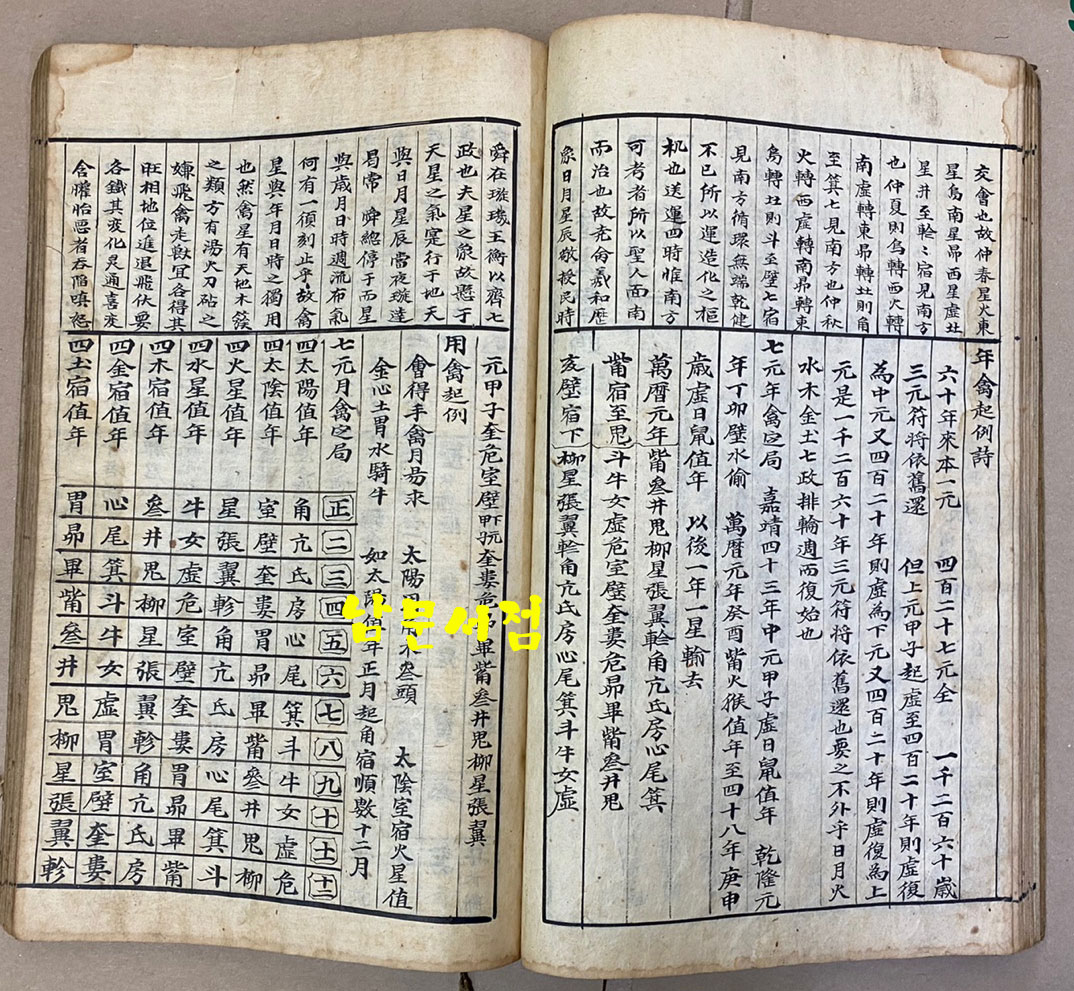 交會也故仲春星火東
星鳥南星昴西星虛北
星井至軫〻宿見南方
也仲夏則鳥轉西火轉
南虛轉東昴轉北則角
至箕七見南方也仲秋
火轉西虛轉南昴轉東
鳥轉北則斗至壁七宿
見南方循環無端乾健
不已所以運造化之樞
机也送運四時惟南方
可考者所以聖人面南
而治也故堯命羲和歷
象日月星辰敬授民時
年禽起例詩
六十年來本一元 四百二十七元全 一千二百六十歲
三元符将依舊還 但上元甲子起虛至四百二十年則虛復
為中元又四百二十年則虛為下元又四百二十年則虛復為上
元是一千二百六十年三元符将依舊還也要之不外乎日月火
水木金土七政排輪週而復始也
七元年禽定局 嘉靖四十三年中元甲子虛日鼠值年 乾隆元
年丁卯壁水偷 萬曆元年癸酉觜火猴值年至四十八年庚申
歲虛日鼠值年 以後一年一星輪去
萬曆元年觜叄井鬼柳星張翼軫角亢氐房心尾箕
觜宿至鬼斗牛女虛危室壁奎婁危昴畢觜叄井鬼
亥壁宿下柳星張翼軫角亢氐房心尾箕斗牛女虛
舜在璇璣玉衡以齊七
政也夫星之象故懸于
天星之氣寔行于地天
與日月星辰當夜璇遶
曷常 舜總停于而星
與歲月日時週流布氣
何有一須刻止乎故禽
星與年月日時之獨用
也然禽星有天地木簇
之類方有湯火刀砧之
嫌飛禽走獸宜各得其
旺相地位進退飛伏要
各鐵其變化通喜变
含怡惡者呑陷嗔怒
元甲子奎危室壁奎婁危畢觜叄井鬼柳星張翼
用禽起例
會得年禽月易求 太陽叄頭 太陰室宿火星值
金心土胃水騎牛 如太陽值年正月起角宿順數十二月
七元月禽定局 正 二 三 四 五 六 七 八 九 十 十一 十二
四太陽值年 角 亢 氐 房 心 尾 箕 斗 牛 女 虛 危
四太陰值年 室 壁 奎 婁 胃 昴 畢 觜 參 井 鬼 柳
四火星值年 星 張 翼 軫 角 亢 氐 房 心 尾 箕 斗
四水星值年 牛 女 虛 危 室 壁 奎 婁 胃 昴 畢 觜
四木宿值年 參 井 鬼 柳 星 張 翼 軫 角 亢 氐 房
四金宿值年 心 尾 箕 斗 牛 女 虛 胃 室 壁 奎 婁
四土宿值年 胃 昴 畢 觜 參 井 鬼 柳 星 張 翼 軫
남문서점